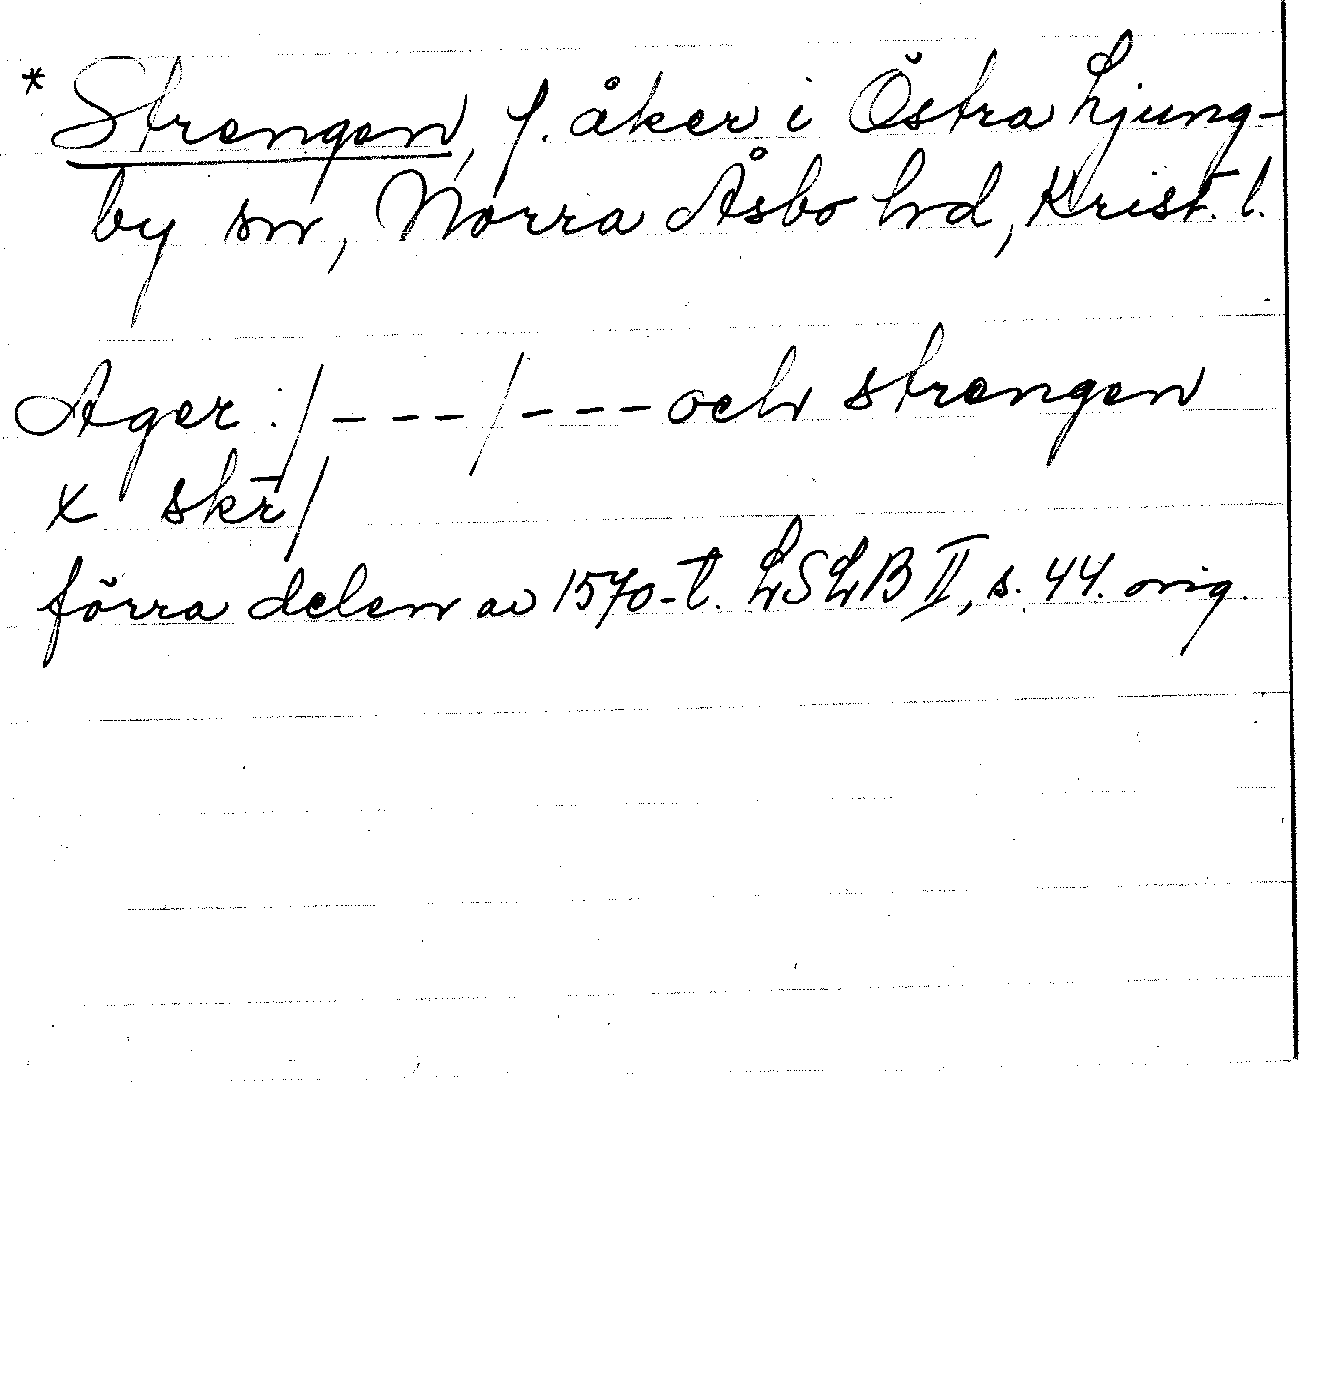 * Strengen, f. åker i Östra Ljung-
by sn, Norra Åsbo hd, Krist. l.
Ager :/---/---och strengen
x skr̄/
förra delen av 1570-t. LSLB II, s. 44. orig.